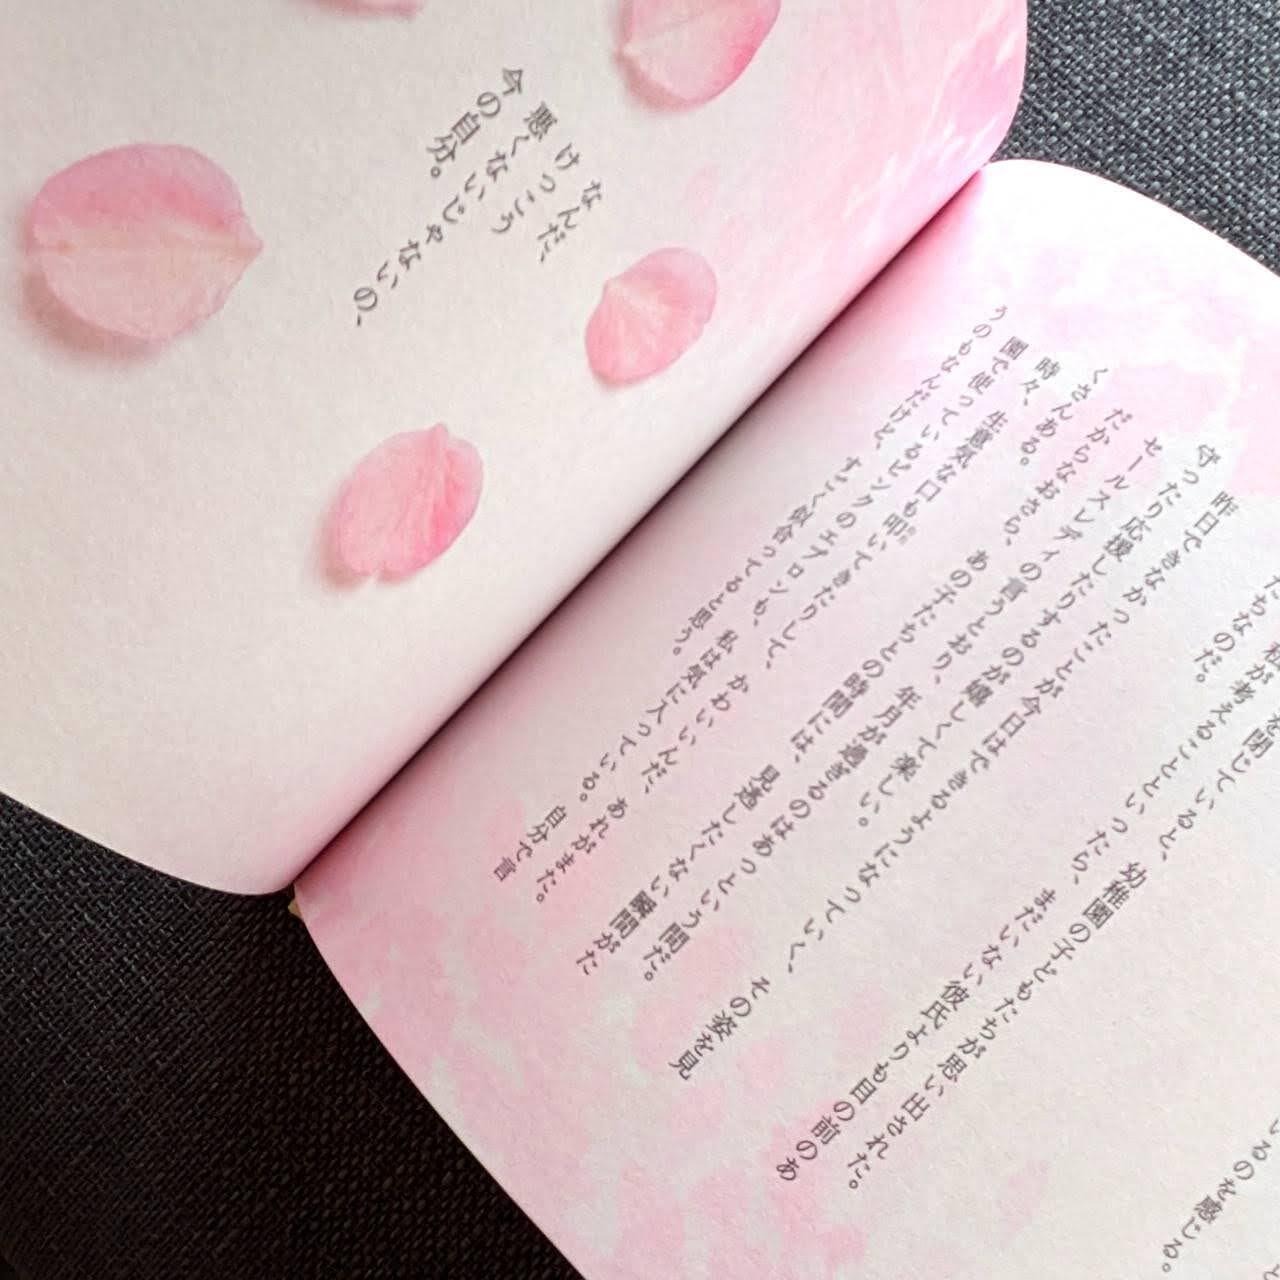 るのを感じる。
を閉じていると、幼稚園の子どもたちが思い出された。
私が考えることといったら、まだいない彼氏よりも目の前のあ
たちなのだ。
昨日できなかったことが今日はできるようになっていく、その姿を見
守ったり応援したりするのが嬉しくて楽しい。
セールスレディの言うとおり、年月が過ぎるのはあっという間だ。
だからなおさら、あの子たちとの時間には、見逃したくない瞬間がた
くさんある。
時々、生意気な口も叩いてきたりして、かわいいんだ、あれがまた。
園で使っているピンクのエプロンも、私は気に入っている。自分で言
うのもなんだけど、すごく似合ってると思う。
なんだ、
けっこう
悪くないじゃないの、
今の自分。